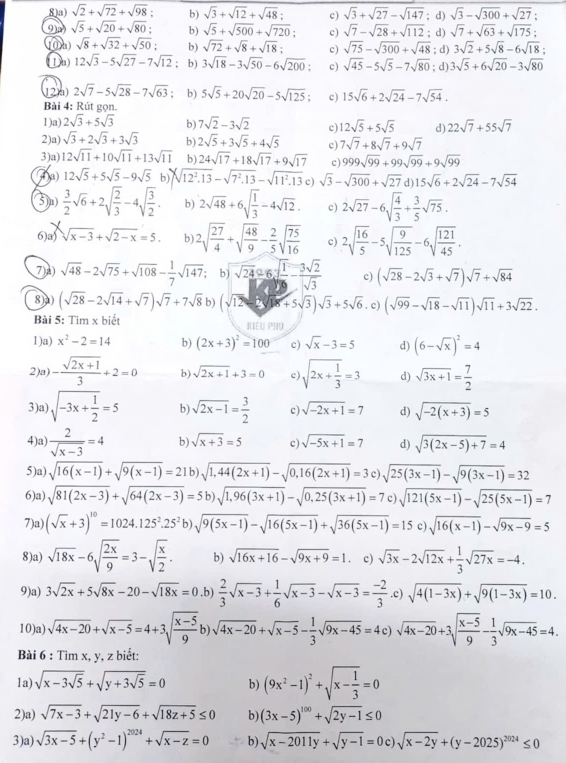 8)a) √2+√72+√98 ; b) √3+√12+√48 ; c) √3+√27−√147 ; d) √3−√300+√27 ;
9)a) √5+√20+√80 ; b) √5+√500+√720 ; c) √7−√28+√112 ; d) √7+√63+√175 ;
10)a) √8+√32+√50 ; b) √72+√8+√18 ; c) √75−√300+√48 ; d) 3√2+5√8−6√18 ;
11)a) 12√3−5√27−7√12 ; b) 3√18−3√50−6√200 ; c) √45−5√5−7√80 ; d)3√5+6√20−3√80
12)a) 2√7−5√28−7√63 ; b) 5√5+20√20−5√125 ; c) 15√6+2√24−7√54 .
Bài 4: Rút gọn.
1)a) 2√3+5√3 b) 7√2−3√2 c)12√5+5√5 d)22√7+55√7
2)a) √3+2√3+3√3 b) 2√5+3√5+4√5 c) 7√7+8√7+9√7
3)a)12√11+10√11+13√11 b) 24√17+18√17+9√17 c) 999√99+99√99+9√99
4)a) 12√5+5√5−9√5 b) √(12².13)−√(7².13)−√(11².13) c) √3−√300+√27 d)15√6+2√24−7√54
5)a) 3/2√6+2√(2/3)−4√(3/2) . b) 2√48+6√(1/3)−4√12 . c) 2√27−6√(4/3)+3/5√75 .
6)a) √(x−3)+√(2−x)=5 . b) 2√(27/4)+√(48/9)−2/5√(75/16) c) 2√(16/5)−5√(9/125)−6√(121/45) .
7)a) √48−2√75+√108−1/7√147 ; b) √24−6√(1/6)−3√2/√3 c) (√28−2√3+√7)√7+√84
8)a) (√28−2√14+√7)√7+7√8 b) (√12−2√18+5√3)√3+5√6 . c) (√99−√18−√11)√11+3√22 .
KIỀU PHÚ
Bài 5: Tìm x biết
1)a) x²−2=14 b) (2x+3)²=100 c) √x−3=5 d) (6−√x)²=4
2)a) −√(2x+1)/3+2=0 b) √(2x+1)+3=0 c) √(2x+1/3)=3 d) √(3x+1)=7/2
3)a) √(−3x+1/2)=5 b) √(2x−1)=3/2 c) √(−2x+1)=7 d) √(−2(x+3))=5
4)a) 2/√(x−3)=4 b) √(x+3)=5 c) √(−5x+1)=7 d) √(3(2x−5)+7)=4
5)a) √(16(x−1))+√(9(x−1))=21 b) √(1,44(2x+1))−√(0,16(2x+1))=3 c) √(25(3x−1))−√(9(3x−1))=32
6)a) √(81(2x−3))+√(64(2x−3))=5 b) √(1,96(3x+1))−√(0,25(3x+1))=7 c) √(121(5x−1))−√(25(5x−1))=7
7)a) (√x+3)¹⁰=1024.125².25² b) √(9(5x−1))−√(16(5x−1))+√(36(5x−1))=15 c) √(16(x−1))−√(9x−9)=5
8)a) √(18x)−6√(2x/9)=3−√(x/2) . b) √(16x+16)−√(9x+9)=1. c) √(3x)−2√(12x)+1/3√(27x)=−4.
9)a) 3√(2x)+5√(8x)−20−√(18x)=0 .b) 2/3√(x−3)+1/6√(x−3)−√(x−3)=−2/3 .c) √(4(1−3x))+√(9(1−3x))=10 .
10)a) √(4x−20)+√(x−5)=4+3√((x−5)/9) b) √(4x−20)+√(x−5)−1/3√(9x−45)=4 c) √(4x−20)+3√((x−5)/9)−1/3√(9x−45)=4.
Bài 6 : Tìm x, y, z biết:
1a) √(x−3√5)+√(y+3√5)=0 b) (9x²−1)²+√(x−1/3)=0
2)a) √(7x−3)+√(21y−6)+√(18z+5)≤0 b) (3x−5)¹⁰⁰+√(2y−1)≤0
3)a) √(3x−5)+(y²−1)²⁰²⁴+√(x−z)=0 b) √(x−2011y)+√(y−1)=0 c) √(x−2y)+(y−2025)²⁰²⁴≤0